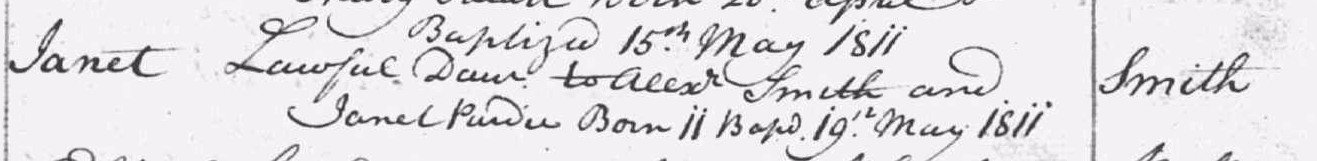 born 20. April
Baptized 15th May 1811
Janet Lawful Daur. to Alexr Smith and Smith
Janet Purdie Born 11 Bapd. 19th May 1811